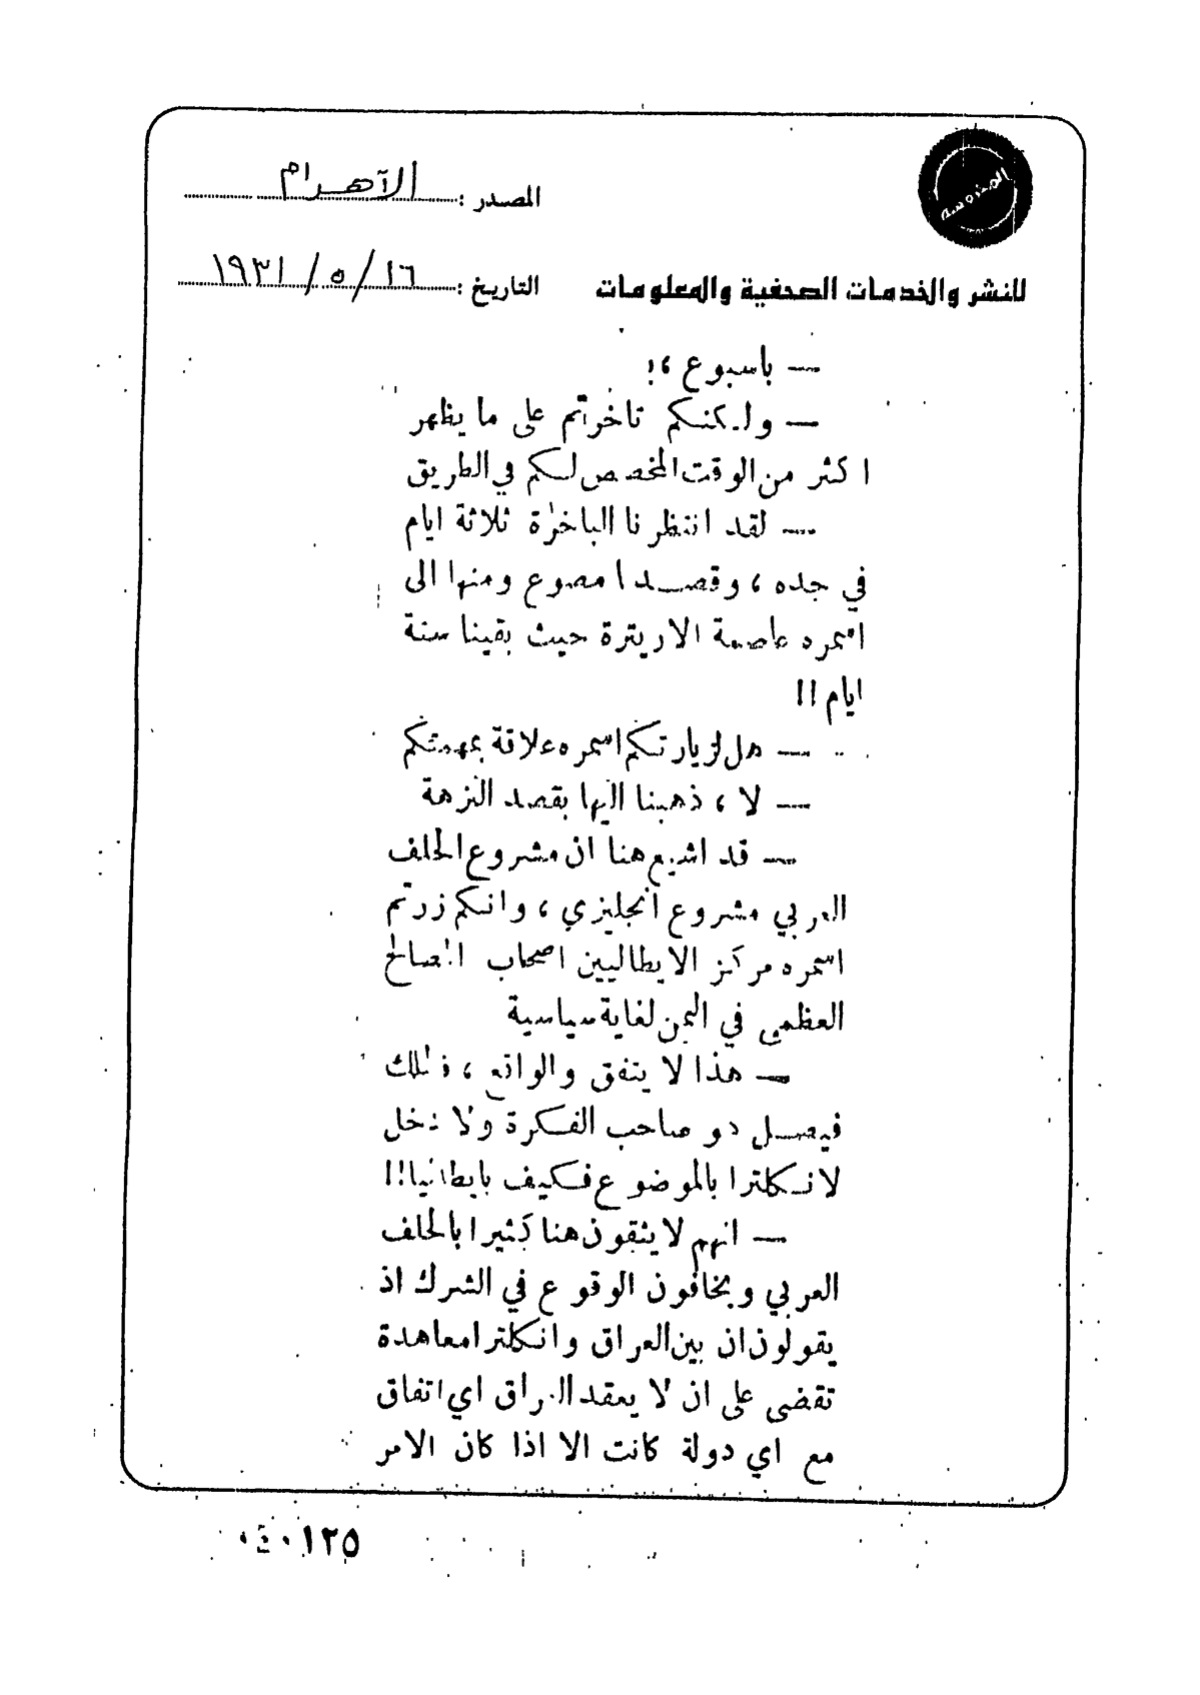 المحروسة
المصدر : الآهرام
للنشر والخدمات الصحفية والمعلومات
التاريخ : ١٦/ ٥/ ١٩٣١
— باسبوع ،!
— ولكنكم تاخرتم على ما يظهر
اكثر من الوقت المخصص لكم في الطريق
— لقد انتظرنا الباخرة ثلاثة ايام
في جده ، وقصدنا مصوع ومنها الى
اسمره عاصمة الاريترة حيث بقينا ستة
ايام !!
— هل لزيارتكم اسمره علاقة بمهمتكم
— لا ، ذهبنا اليها بقصد النزهة
— قد اشيع هنا ان مشروع الحلف
العربي مشروع انجليزي ، وانكم زرتم
اسمره مركز الايطاليين اصحاب المصالح
العظمى في اليمن لغاية سياسية
— هذا لا يتفق والواقع ، فالملك
فيصل هو صاحب الفكرة ولا دخل
لانكلترا بالموضوع فكيف بايطاليا!!
— انهم لا يثقون هنا كثيرا بالحلف
العربي ويخافون الوقوع في الشرك اذ
يقولون ان بين العراق وانكلترا معاهدة
تقضى على ان لا يعقد العراق اي اتفاق
مع اي دولة كانت الا اذا كان الامر
٠٤٠١٢٥